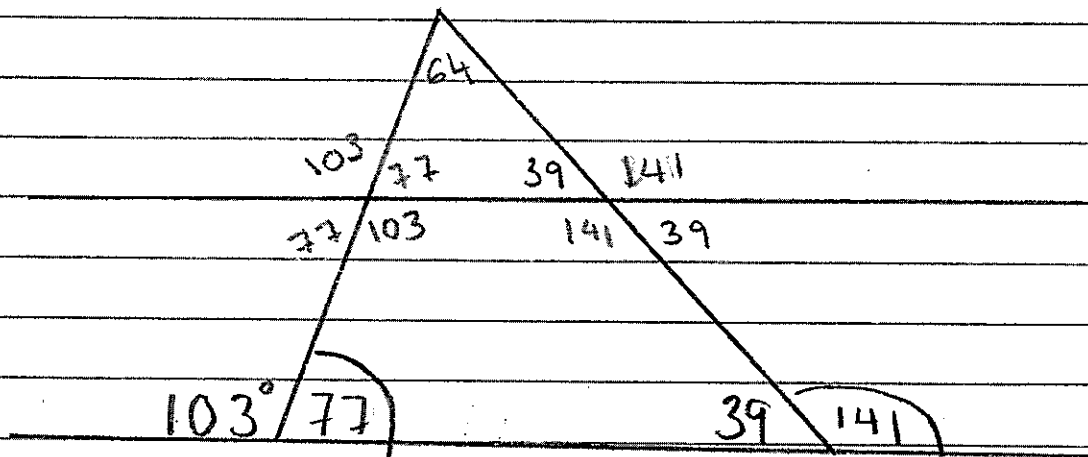 64
103 77 39 141
77 103 141 39
103° 77 39 141